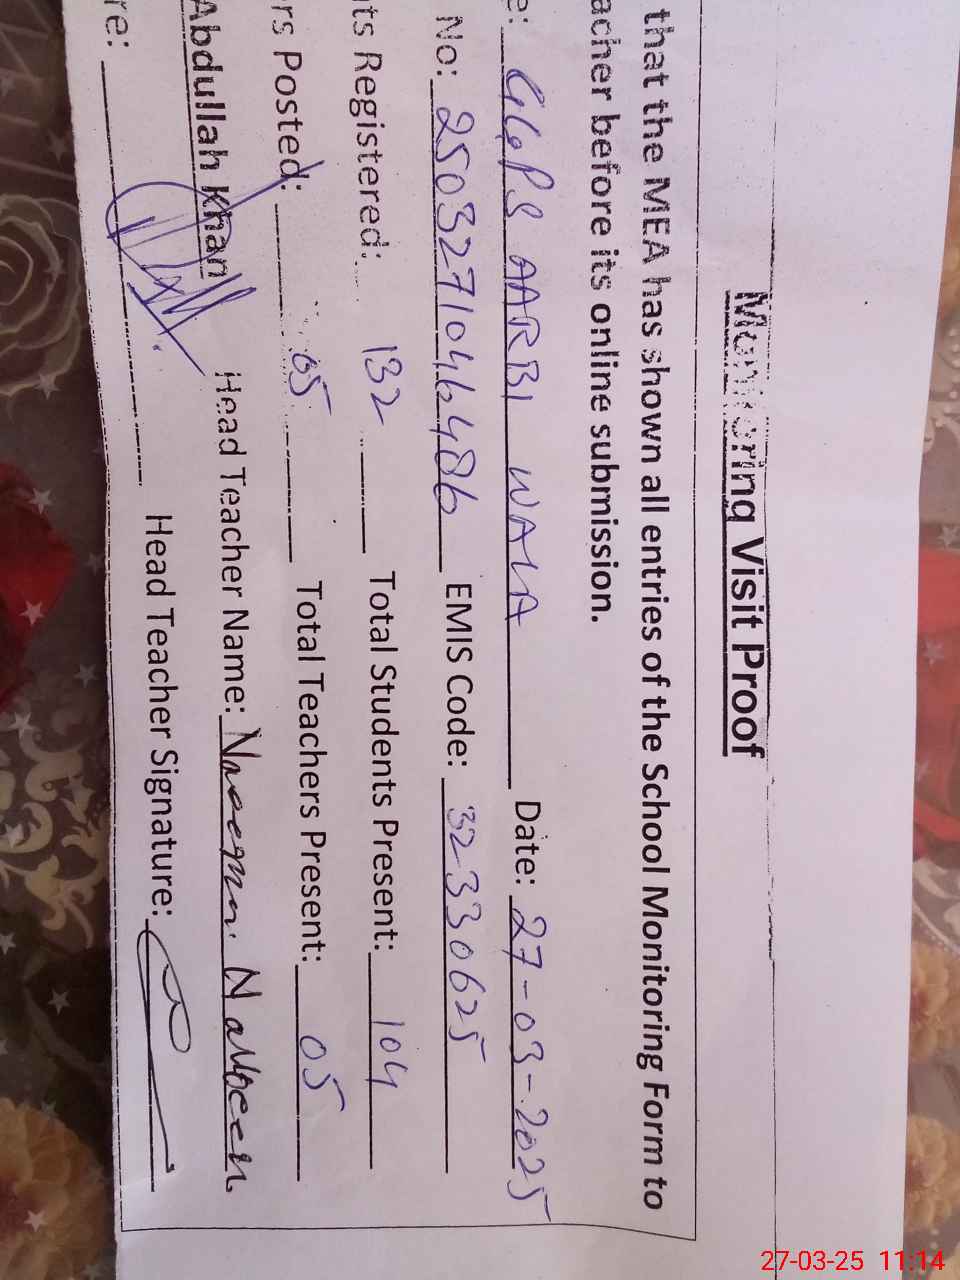 Monitoring Visit Proof
that the MEA has shown all entries of the School Monitoring Form to
acher before its online submission.
e: GGPS AARBI WALA Date: 27-03-2025
No: 2503271046486 EMIS Code: 32330625
ts Registered: 132 Total Students Present: 104
rs Posted: 05 Total Teachers Present: 05
Abdullah Khan Head Teacher Name: Naeem Nabeen
re: Head Teacher Signature:
27-03-25 11:14